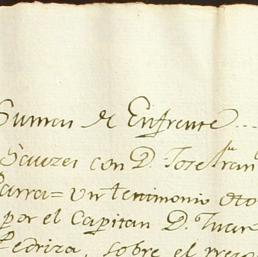 Suman de Enfrente...
Sauzes con D. Jose Fran
Parra= Un testimonio oto
por el Capitan D. Juan
Pedriza, sobre el